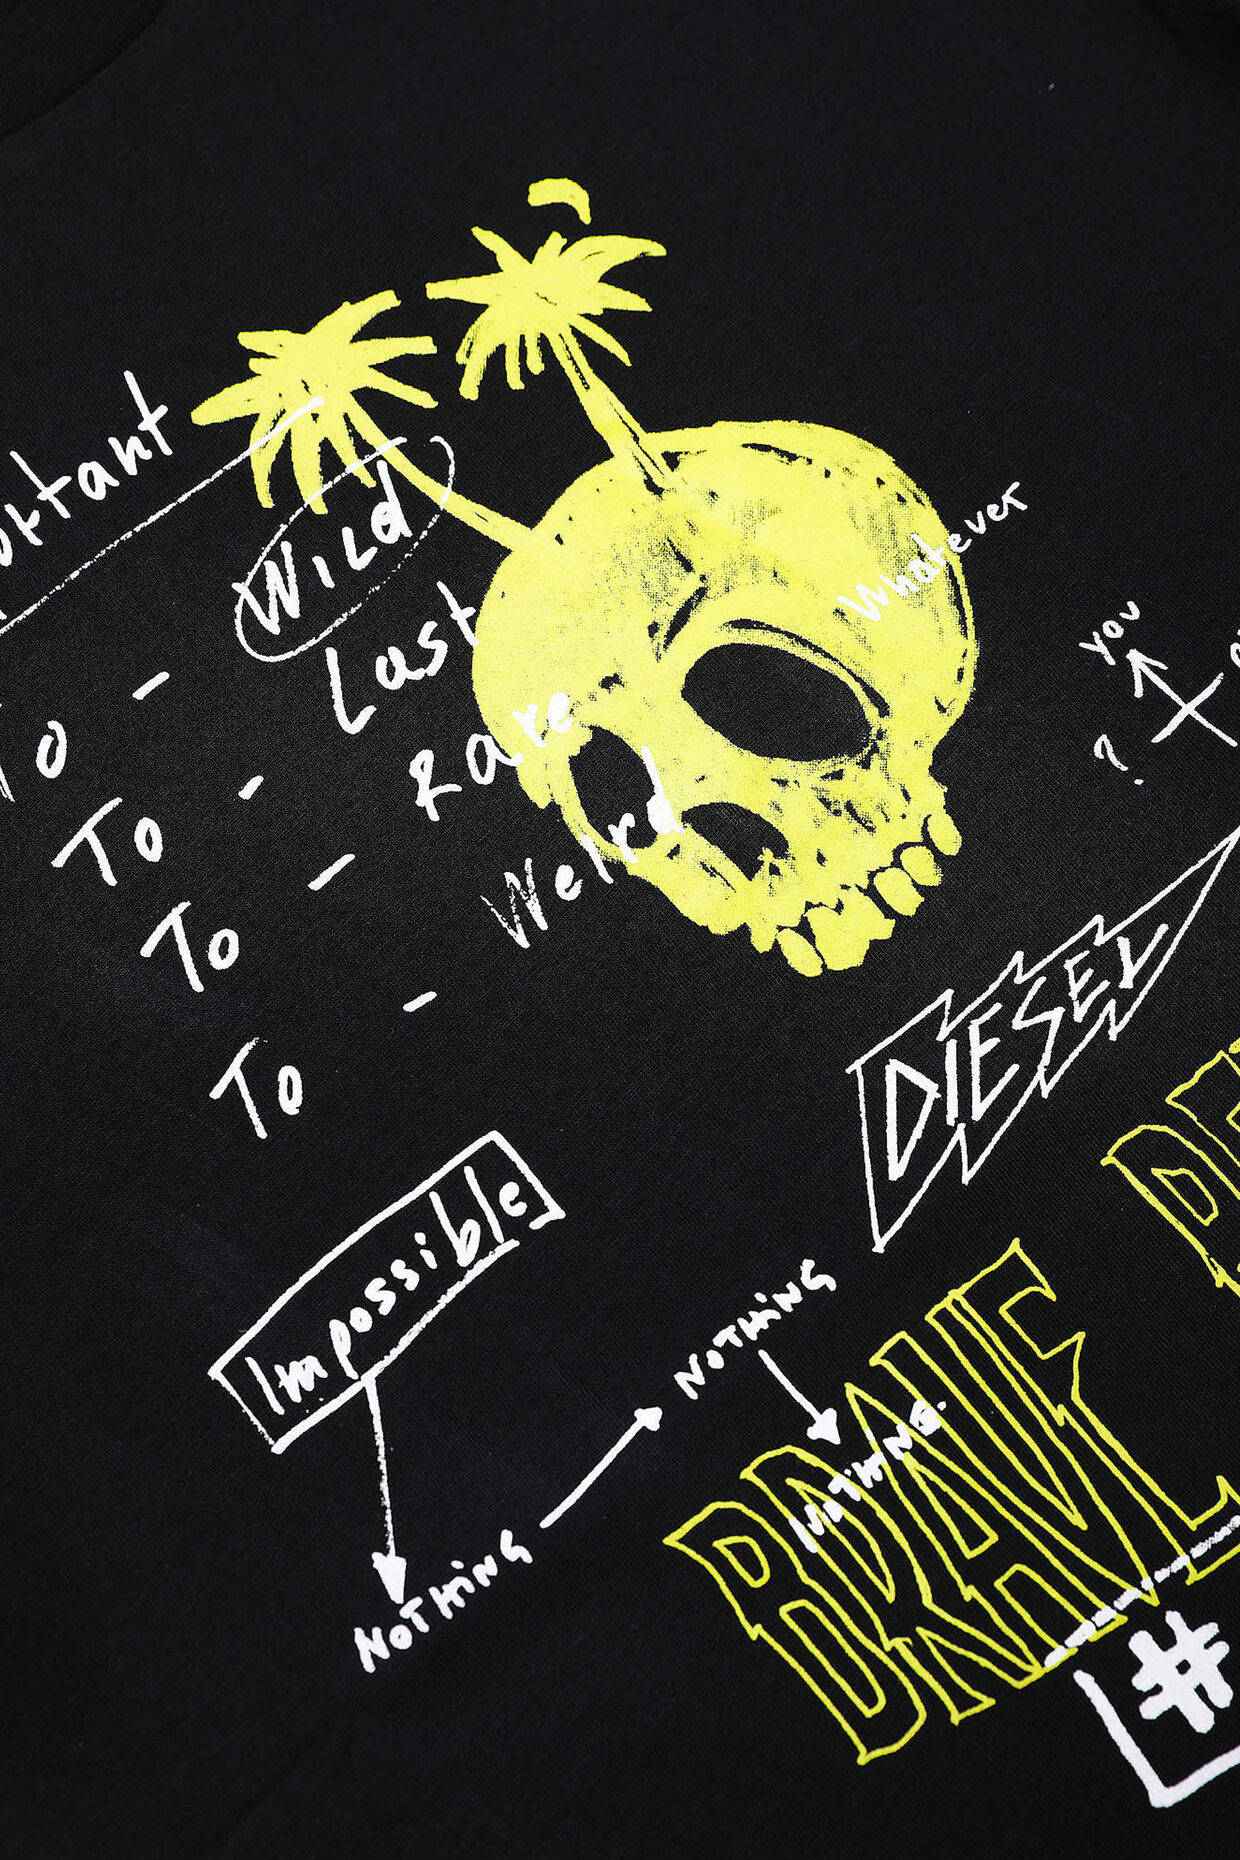 Wild
Last
Rare
Weird
Whatever
YOU
?
To -
To -
To -
To -
DIESEL
Impossible
NOTHING
NOTHING
NOTHING.
BRAVE
#